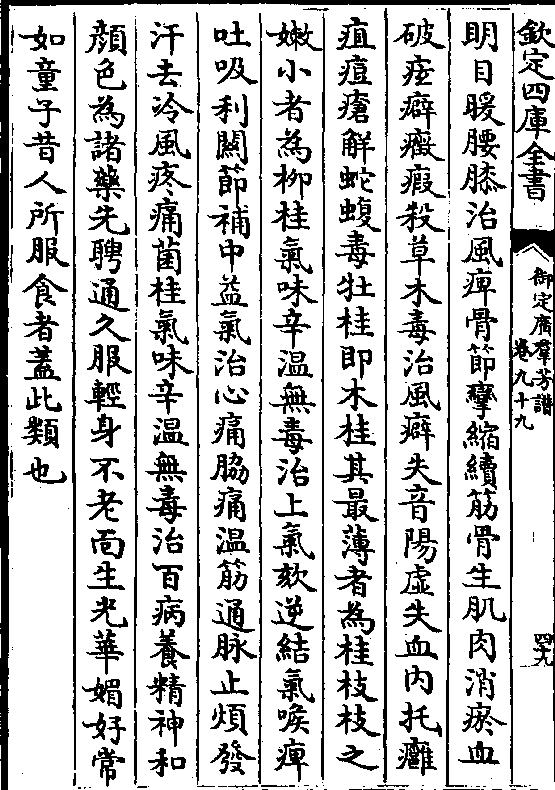 欽定四庫全書
御定廣羣芳譜
卷九十九
四九
明目暖腰膝治風痺骨節攣縮續筋骨生肌肉消瘀血
破痃癖癥瘕殺草木毒治風癖失音陽虛失血内托癰
疽痘瘡解蛇蝮毒牡桂即木桂其最薄者為桂枝枝之
嫩小者為柳桂氣味辛温無毒治上氣欬逆結氣喉痺
吐吸利關節補中益氣治心痛脇痛温筋通脉止煩發
汗去冷風疼痛菌桂氣味辛温無毒治百病養精神和
顔色為諸藥先聘通久服輕身不老面生光華媚好常
如童子昔人所服食者蓋此類也